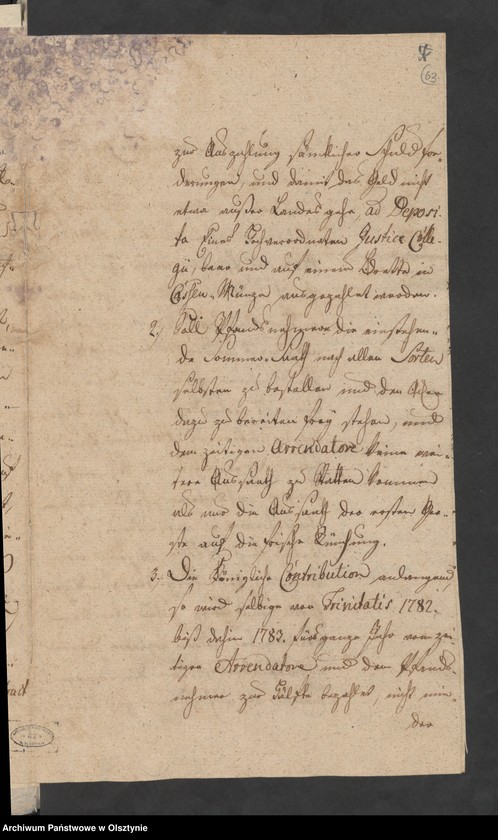 63
zur Auszahlung sämtlicher Schuld for-
derungen, und damit das Geld nicht
etwa außer Landes gehe, ad Deposi-
ta Eines Hochverordneten Justice Colle-
gii, baar und auf einem Brette in
Cassen-Müntze ausgezahlet werden.
2. Soll Pfands nehmern die einstehen-
de Sommer-Saath nach allen Sorten
selbsten zu bestellen und den Acker
dazu zu bereiten frey stehen, und
dem zeitigen Arrendatore keine wei-
tere Aussaath zu statten kommen
als nur die Aussaath der ersten Ger-
ste auf die frische
3. Die Königliche Contribution anlangend
so wird selbige von Trinitatis 1782.
biß dahin 1783. fürs ganze Jahr vom zei-
tigen Arrendatore und dem Pfands-
nehmer zur Hälfte bezahlet, nicht min-
der
Archiwum Państwowe w Olsztynie